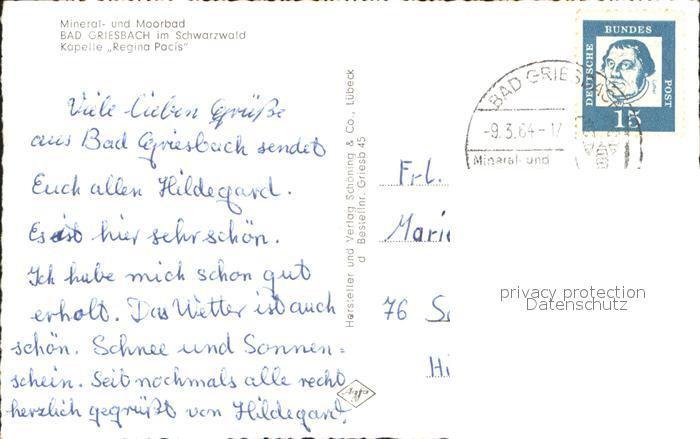 Mineral- und Moorbad
BAD GRIESBACH im Schwarzwald
Kapelle „Regina Pacis"
Viele lieben Grüße
aus Bad Griesbach sendet
Euch allen Hildegard.
Es ist hier sehr schön.
Ich habe mich schon gut
erholt. Das Wetter ist auch
schön. Schnee und Sonnen=
schein. Seit nochmals alle recht
herzlich gegrüßt von Hildegard.
Hersteller und Verlag Schöning & Co., Lübeck
d Bestellnr. Griesb 45
DEUTSCHE
BUNDES
POST
15
BAD GRIESBACH
-9.3.64-17
Mineral- und
Frl.
Marie
76 Sc
Hi
privacy protection
Datenschutz